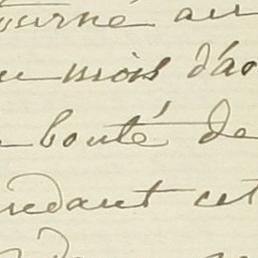 ourné au
mois d'ao
bonté de
endant cet